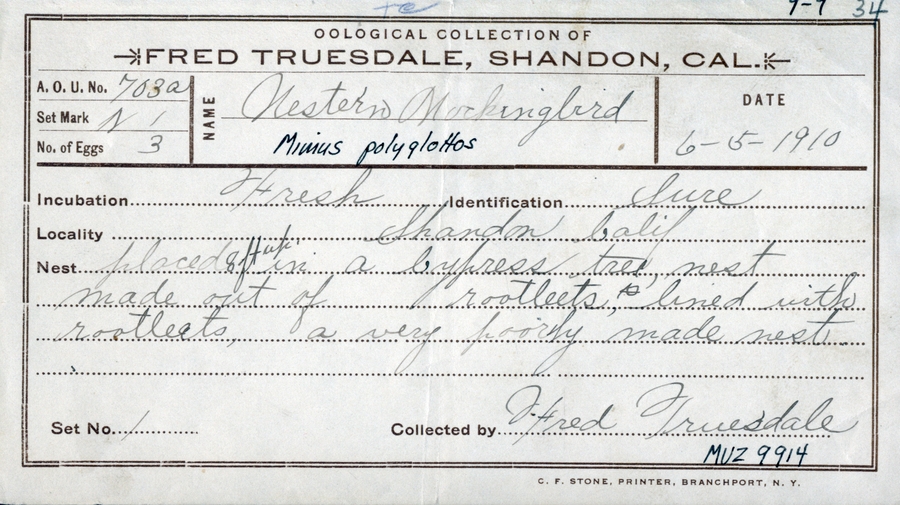 9-9 34
OOLOGICAL COLLECTION OF
FRED TRUESDALE, SHANDON, CAL.
A. O. U. No. 703a
Set Mark N 1
No. of Eggs 3
NAME Western Mockingbird
Mimus polyglottos
DATE
6-5-1910
Incubation Fresh Identification Sure
Locality Shandon Calif
Nest placed 8 ft up, in a Cypress tree, nest
made out of rootleets, & lined with
rootleets, a very poorly made nest.
Set No. 1 Collected by Fred Truesdale
MUZ 9914
C. F. STONE, PRINTER, BRANCHPORT, N. Y.